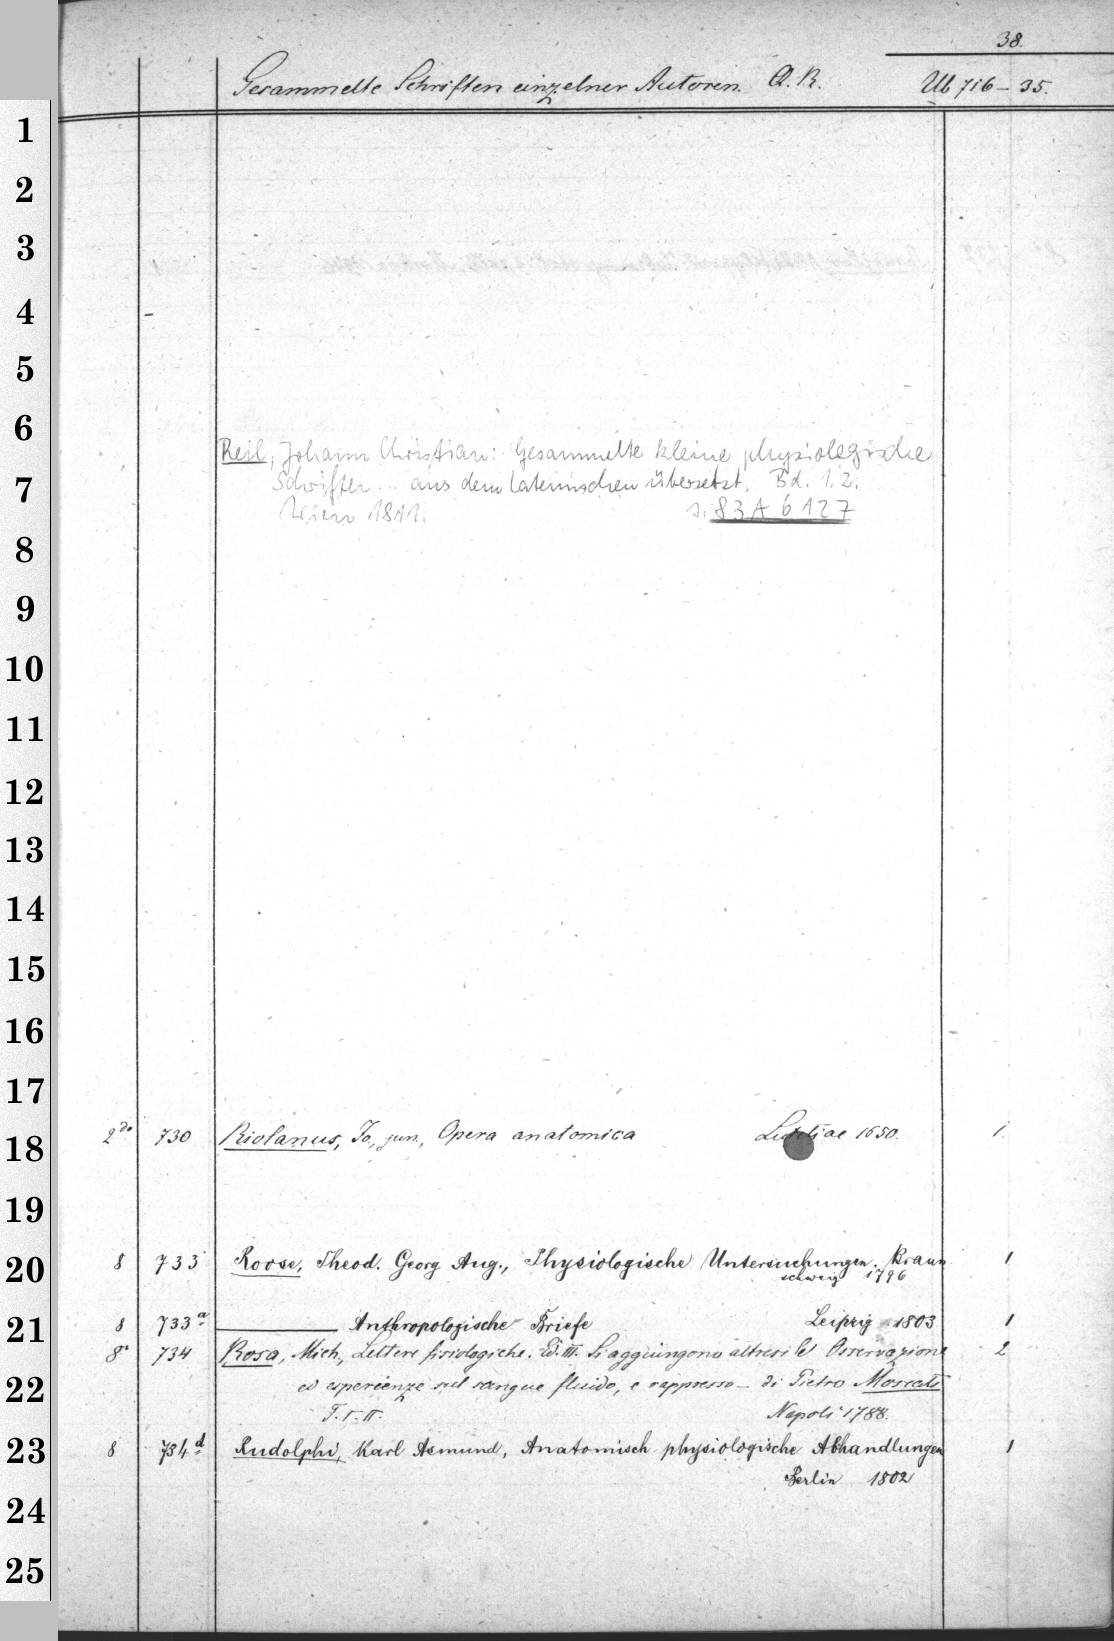 38.
Gesammelte Schriften einzelner Autoren. A. R. Ub 716-35.
Reil, Johann Christian: Gesammelte kleine physiologische
Schriften... aus dem Lateinischen übersetzt. Bd. 1. 2.
Wien 1811. s. 83 A 6127
2do 730 Riolanus, Jo., jun., Opera anatomica Lutetiae 1650. 1.
8 733 Roose, Theod. Georg Aug., Physiologische Untersuchungen. Braun
schweig 1796 1
8 733a Anthropologische Briefe Leipzig 1803 1
8° 734 Rosa, Mich., Lettere fisiologiche. Ed. III. Si aggiungono altresi le Osservazione 2
ed esperienze sul sangue fluido, e rappreso - di Pietro Moscati
T. I. II. Napoli 1788.
8 734d Rudolphi, Karl Asmund, Anatomisch physiologische Abhandlungen 1
Berlin 1802
1
2
3
4
5
6
7
8
9
10
11
12
13
14
15
16
17
18
19
20
21
22
23
24
25